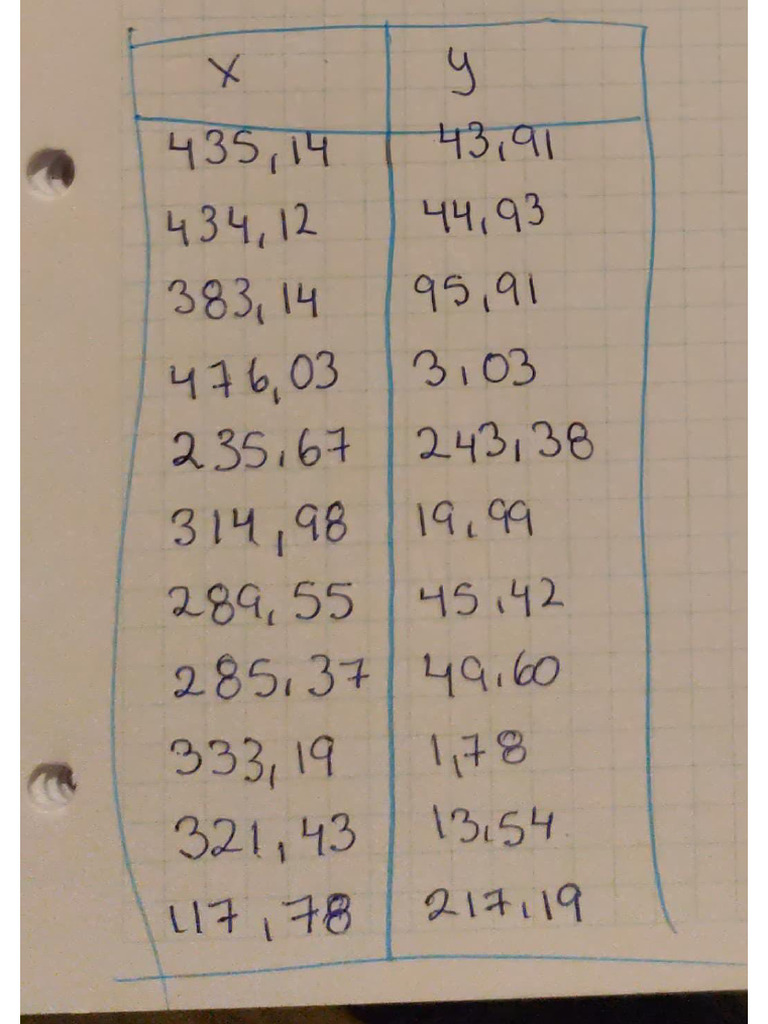 x y
435,14 43,91
434,12 44,93
383,14 95,91
476,03 3,03
235,67 243,38
314,98 19,99
289,55 45,42
285,37 49,60
333,19 1,78
321,43 13,54
117,78 217,19